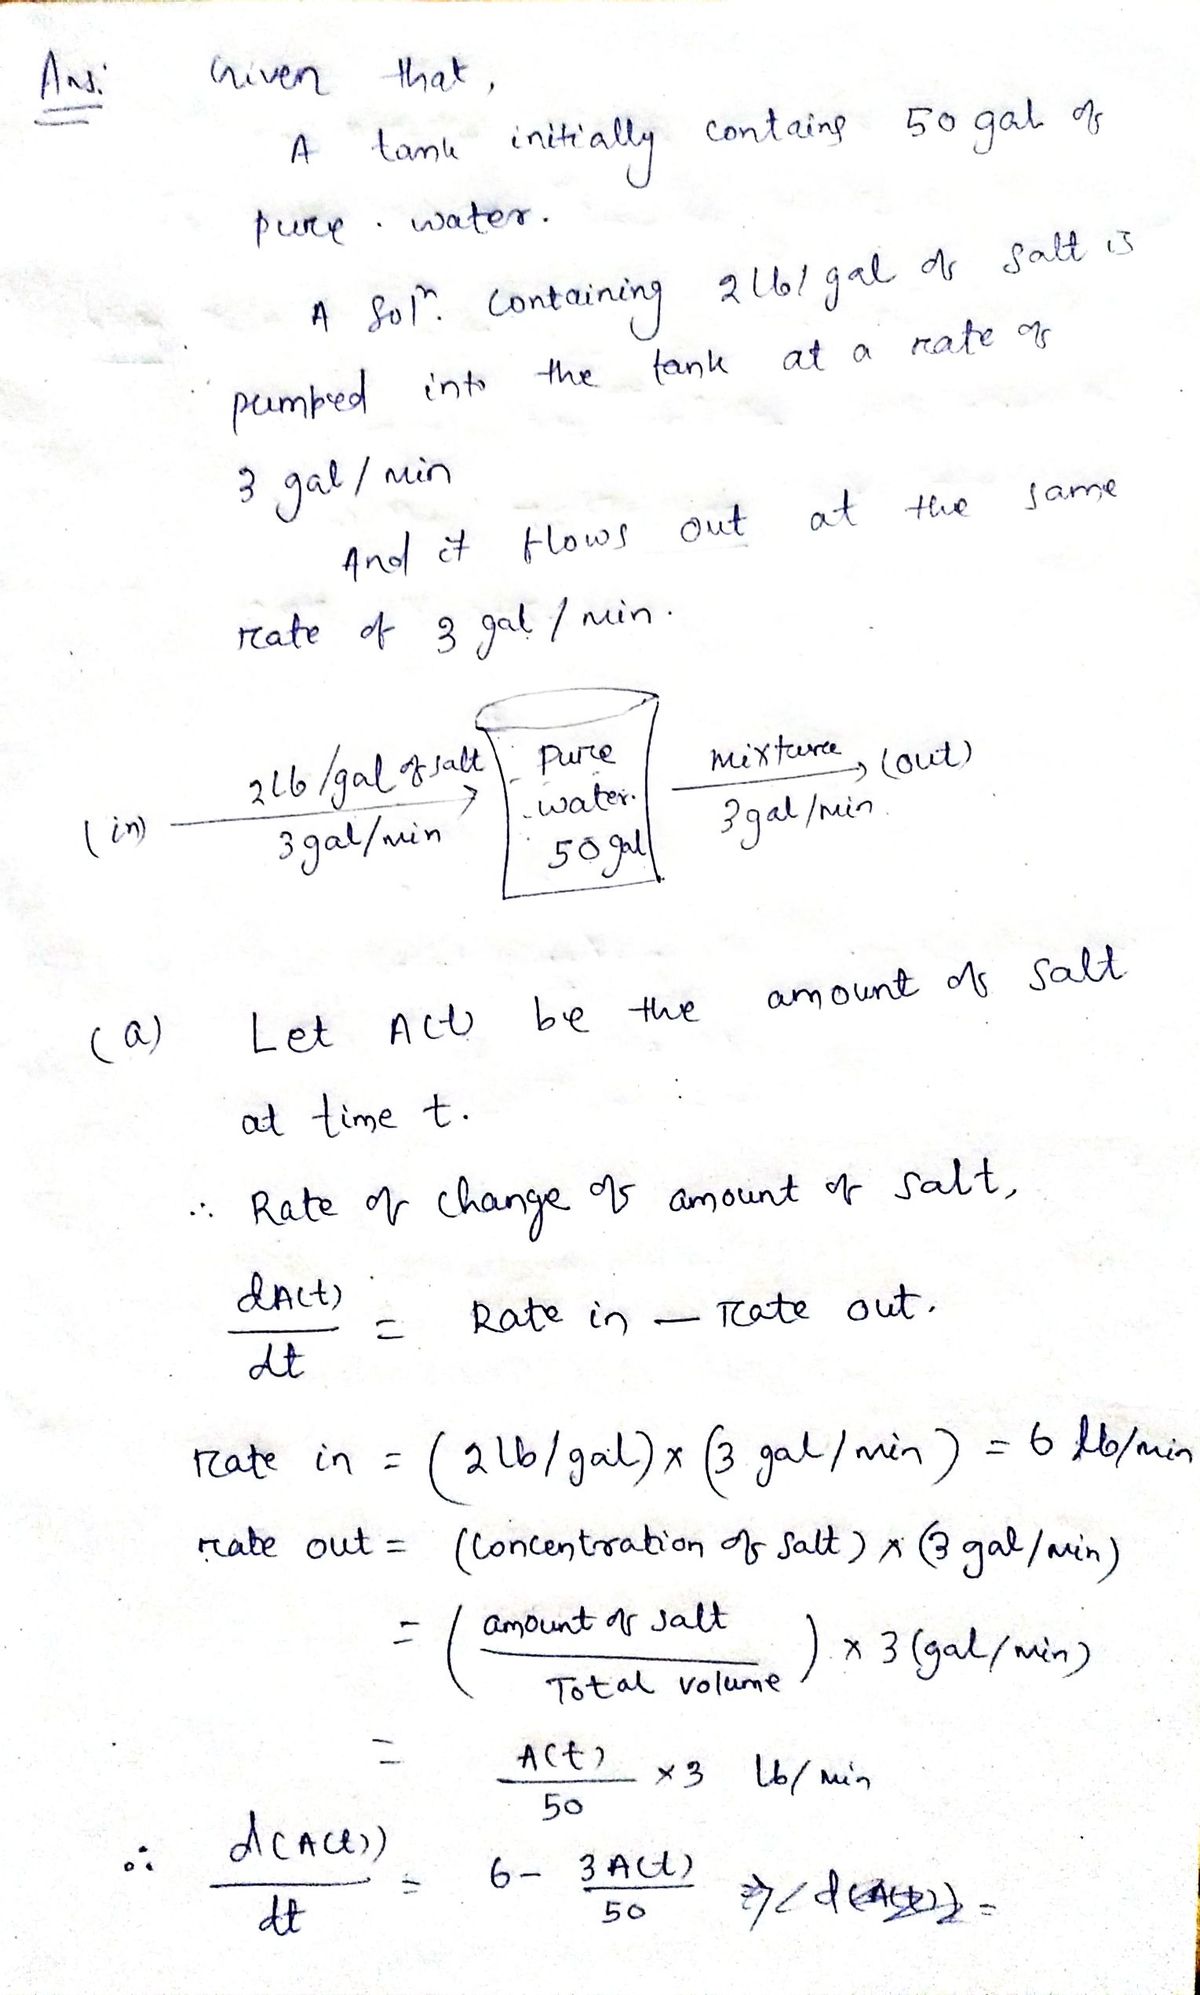 Ans: Given that,
A tank initially contains 50 gal of
pure water.
A Solⁿ. containing 2 lb/gal of salt is
pumped into the tank at a rate of
3 gal/min
And it flows out at the same
rate of 3 gal/min.
2 lb/gal of salt
(in)
3 gal/min
pure
water.
50 gal
mixture
(out)
3 gal/min
(a) Let A(t) be the amount of salt
at time t.
∴ Rate of change of amount of salt,
dA(t)/dt = Rate in — rate out.
rate in = (2 lb/gal) × (3 gal/min) = 6 lb/min
rate out = (concentration of salt) × (3 gal/min)
= (amount of salt / Total volume) × 3 (gal/min)
= A(t)/50 × 3 lb/min
∴ d(A(t))/dt = 6 - 3A(t)/50